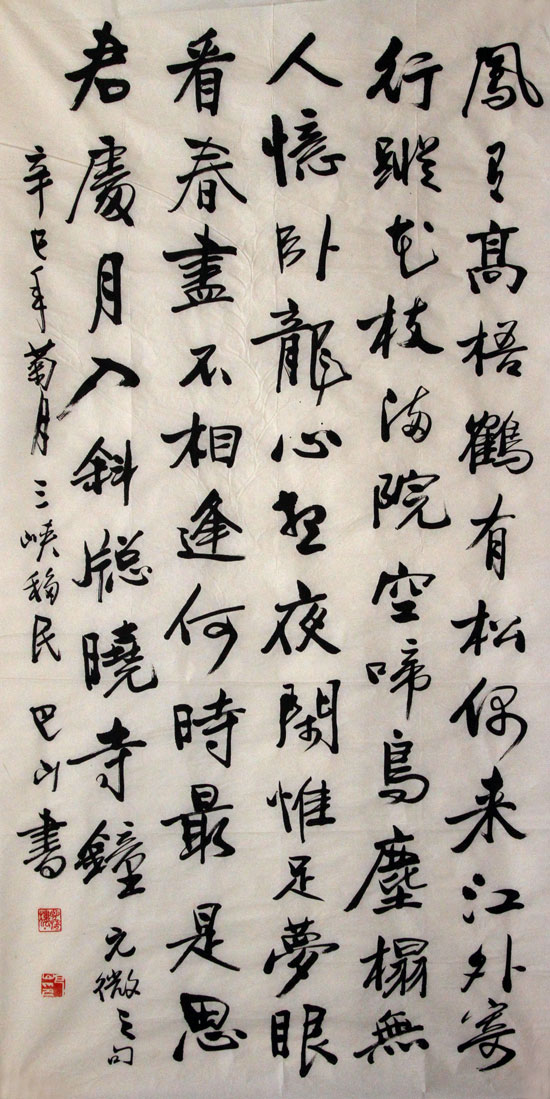 鳳有髙梧鶴有松偶来江外寄
行蹤花枝滿院空啼鳥塵榻無
人憶卧龍心想夜閑惟足夢眼
看春盡不相逢何時最是思
君處月入斜牕曉寺鐘 元微之句
辛巳年菊月三峽移民巴山書